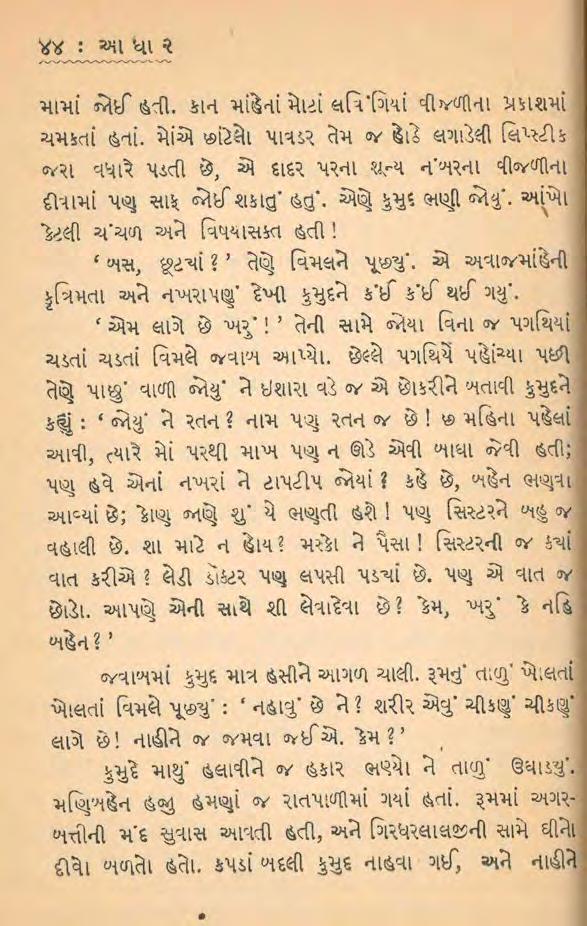 ૪૪ : આ ધા ર
મામાં જોઈ હતી. કાન માંહેનાં મોટાં લત્રિંગિયાં વીજળીના પ્રકાશમાં
ચમકતાં હતાં. મોંએ છાંટેલો પાવડર તેમ જ હોઠે લગાડેલી લિપ્સ્ટીક
જરા વધારે પડતી છે, એ દાદર પરના શૂન્ય નંબરના વીજળીના
દીવામાં પણ સાફ જોઈ શકાતું હતું. એણે કુમુદ ભણી જોયું. આંખો
કેટલી ચંચળ અને વિષયાસક્ત હતી !
‘ બસ, છૂટચાં ? ’ તેણે વિમલને પૂછ્યું. એ અવાજમાંહેની
કૃત્રિમતા અને નખરાપણું દેખી કુમુદને કંઈ કંઈ થઈ ગયું.
‘ એમ લાગે છે ખરું ! ’ તેની સામે જોયા વિના જ પગથિયાં
ચડતાં ચડતાં વિમલે જવાબ આપ્યો. છેલ્લે પગથિયેં પહોંચ્યા પછી
તેણે પાછું વાળી જોયું ને ઇશારા વડે જ એ છોકરીને બતાવી કુમુદને
કહ્યું : ‘ જોયું ને રતન ? નામ પણ રતન જ છે ! છ મહિના પહેલાં
આવી, ત્યારે મોં પરથી માખ પણ ન ઊડે એવી બાઘા જેવી હતી;
પણ હવે એનાં નખરાં ને ટાપટીપ જોયાં ? કહે છે, બહેન ભણવા
આવ્યાં છે; કોણ જાણે શું યે ભણતી હશે ! પણ સિસ્ટરને બહુ જ
વહાલી છે. શા માટે ન હોય? મસ્કો ને પૈસા ! સિસ્ટરની જ ક્યાં
વાત કરીએ ? લેડી ડૉક્ટર પણ લપસી પડચાં છે. પણ એ વાત જ
છોડો. આપણે એની સાથે શી લેવાદેવા છે? કેમ, ખરું કે નહિ
બહેન ? ’
જવાબમાં કુમુદ માત્ર હસીને આગળ ચાલી. રૂમનું તાળું ખોલતાં
ખોલતાં વિમલે પૂછ્યું : ‘ નહાવું છે ને? શરીર એવું ચીકણું ચીકણું
લાગે છે! નાહીને જ જમવા જઈએ. કેમ ? ’
કુમુદે માથું હલાવીને જ હકાર ભણ્યો ને તાળું ઉઘાડ્યું.
મણિબહેન હજુ હમણાં જ રાતપાળીમાં ગયાં હતાં. રૂમમાં અગર-
બત્તીની મંદ સુવાસ આવતી હતી, અને ગિરધરલાલજીની સામે ઘીનો
દીવો બળતો હતો. કપડાં બદલી કુમુદ નાહવા ગઈ, અને નાહીને